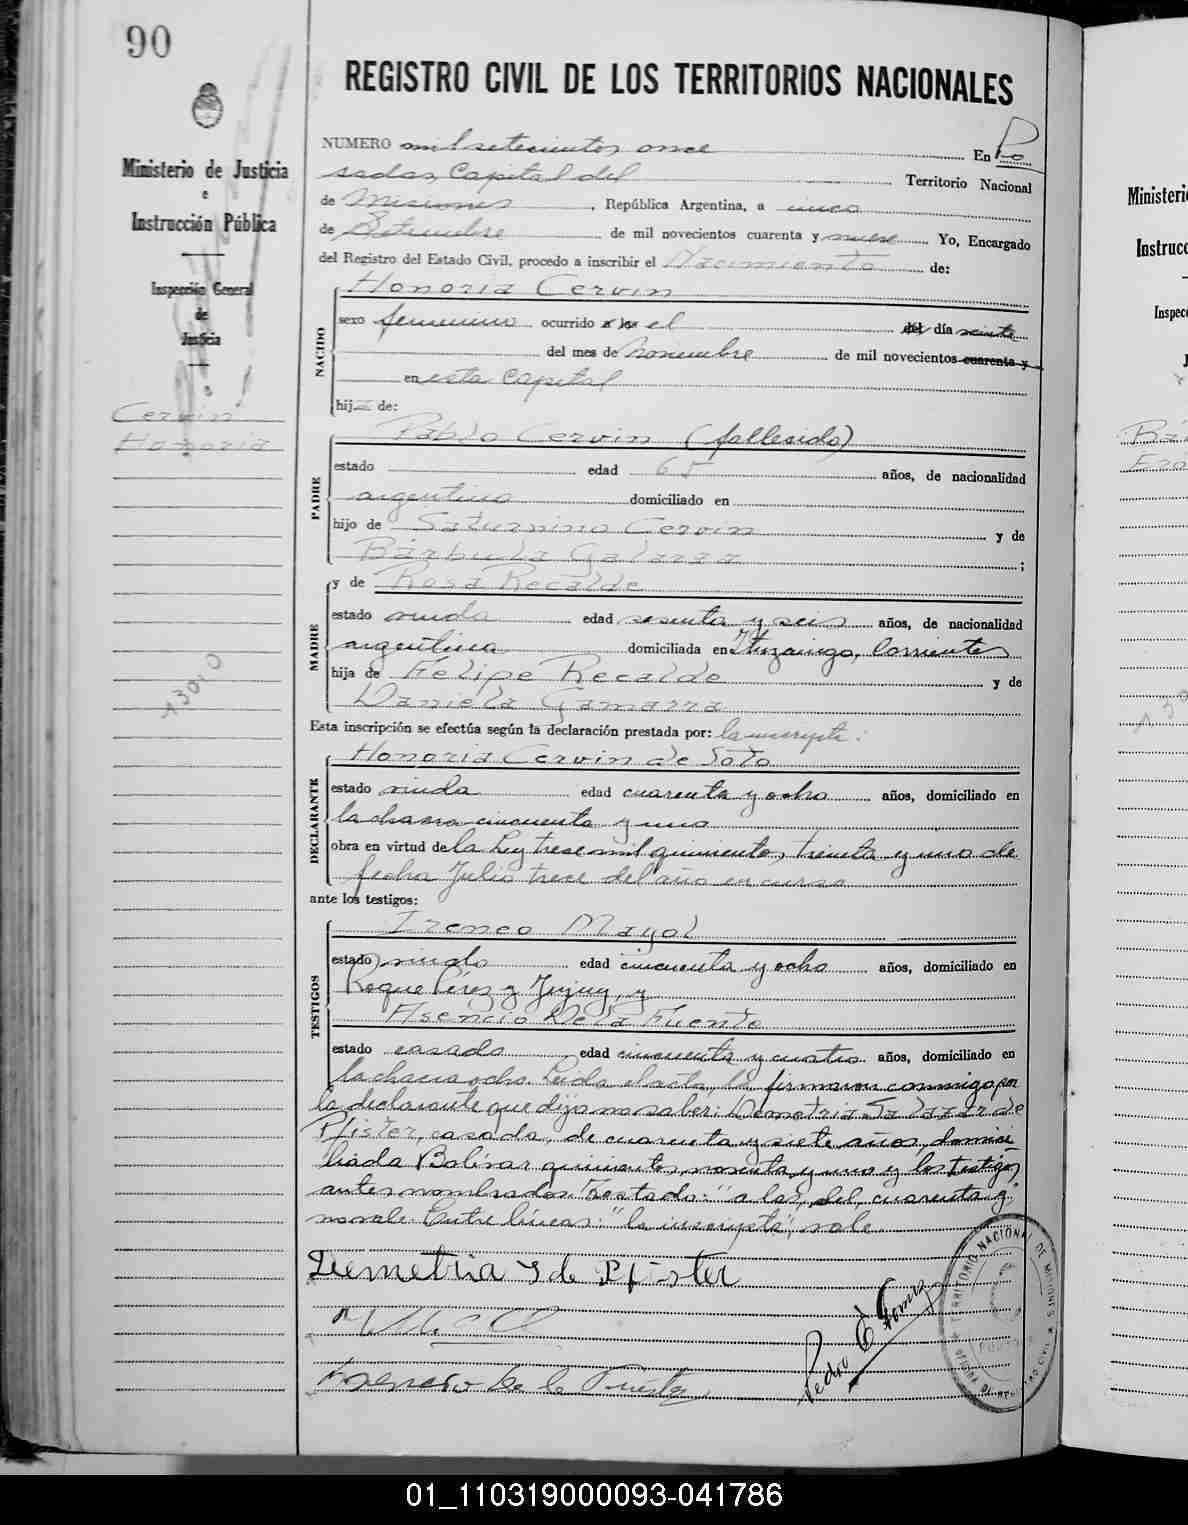 90
REGISTRO CIVIL DE LOS TERRITORIOS NACIONALES
Ministerio de Justicia
e
Instrucción Pública
Inspección General
de
Justicia
Cervin
Honoria
NUMERO mil setecientos once En Po
sadas, Capital del Territorio Nacional
de Misiones, República Argentina, a cinco
de Setiembre de mil novecientos cuarenta y nueve Yo, Encargado
del Registro del Estado Civil, procedo a inscribir el Nacimiento de:
NACIDO
Honoria Cervin
sexo femenino ocurrido a las el del día veinte
del mes de noviembre de mil novecientos cuarenta y
en esta Capital
hija de:
PADRE
Pablo Cervin (fallecido)
estado edad 65 años, de nacionalidad
argentino domiciliado en
hijo de Saturnino Cervin y de
Barbula Galarza;
MADRE
y de Rosa Recalde
estado viuda edad sesenta y seis años, de nacionalidad
argentina domiciliada en Ituzaingo, Corrientes
hija de Felipe Recalde y de
Daniela Gamarra
Esta inscripción se efectúa según la declaración prestada por: la inscripta:
DECLARANTE
Honoria Cervin de Soto
estado viuda edad cuarenta y ocho años, domiciliado en
la chacra cincuenta y uno
obra en virtud de la Ley trece mil quinientos, treinta y uno de
fecha Julio trece del año en curso
ante los testigos:
TESTIGOS
Ireneo Mayol
estado viudo edad cincuenta y ocho años, domiciliado en
Roque Pérez y Jujuy, y
Asencio De la Fuente
estado casado edad cincuenta y cuatro años, domiciliado en
la chacra ocho. Leida el acta, la firmaron conmigo, por
la declarante que dijo no saber: Demetria Salazar de
Pfister, casada, de cuarenta y siete años, domici
liada Bolívar quinientos noventa y uno y los testigos
antes nombrados. Testado: "a las, del, cuarenta y"
no vale. Entre líneas: "la inscripta", vale.
Demetria S de Pfister
Asencio de la Fuente
Pedro E Gomez
TERRITORIO NACIONAL DE MISIONES
Ministerio
Instrucc
Inspecc
01_110319000093-041786